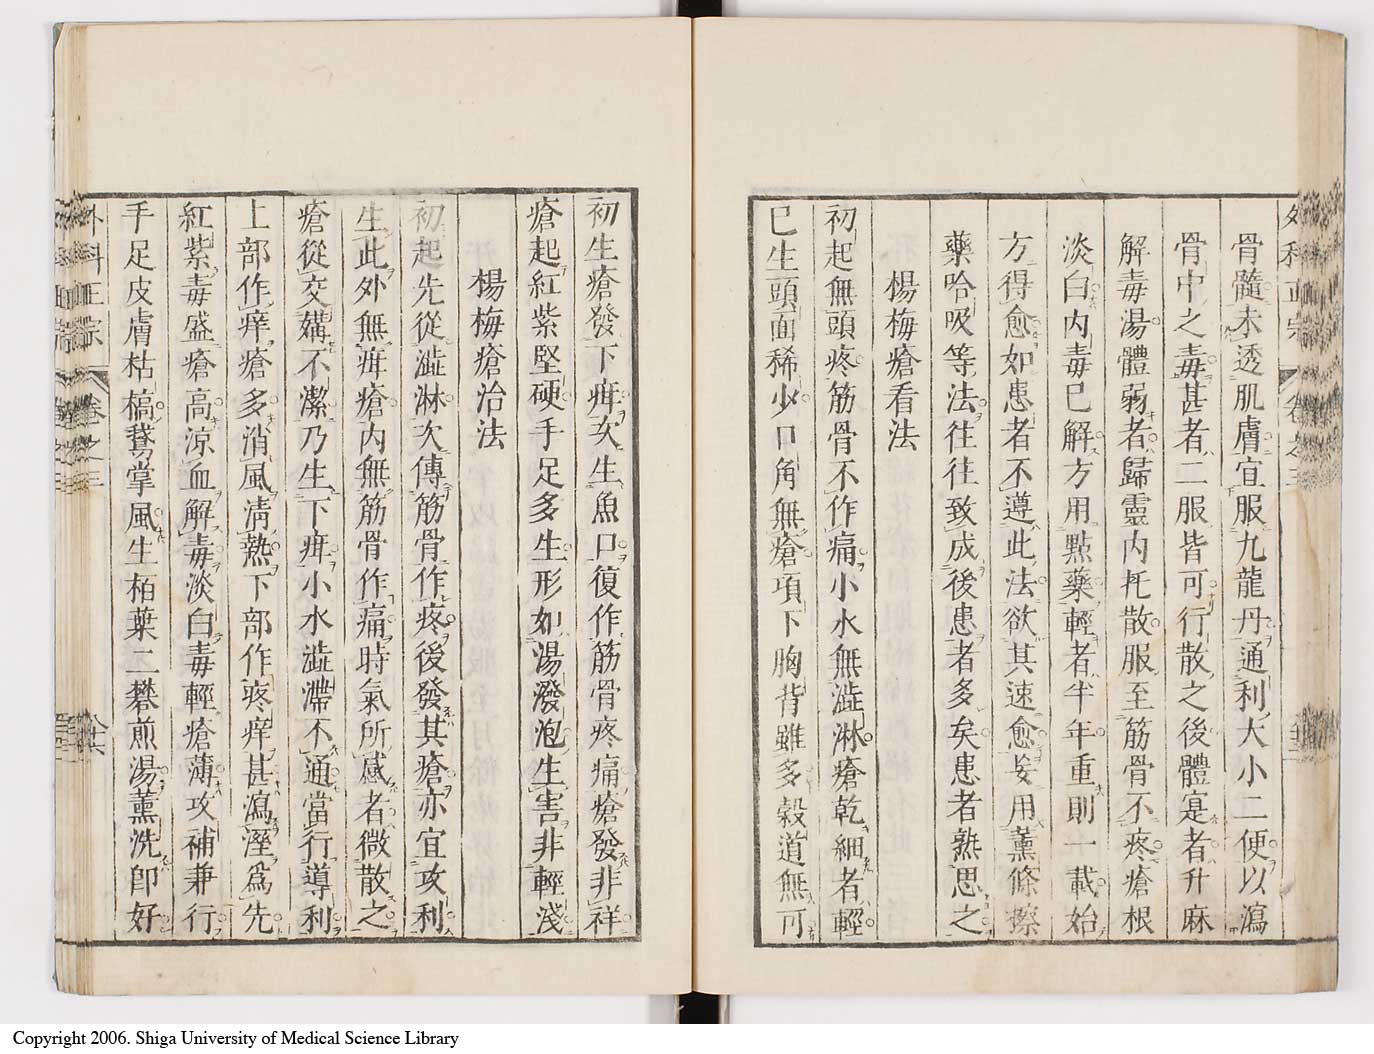 外科正宗 卷之三
骨髓未透肌膚宜服九龍丹通利大小二便以瀉
骨中之毒甚者二服皆可行散之後體寔者升麻
解毒湯體弱者歸靈内托散服至筋骨不疼瘡根
淡白内毒已解方用點藥輕者半年重則一載始
方得愈如患者不遵此法欲其速愈妄用薰條擦
藥哈吸等法往往致成後患者多矣患者熟思之
楊梅瘡看法
初起無頭疼筋骨不作痛小水無澁淋瘡乾細者輕
已生頭面稀少口角無瘡項下胸背雖多穀道無可
初生瘡發下疳次生魚口復作筋骨疼痛瘡發非祥
瘡起紅紫堅硬手足多生形如湯潑泡生害非輕淺
楊梅瘡治法
初起先從澁淋次傳筋骨作疼後發其瘡亦宜攻利
生此外無疳瘡内無筋骨作痛時氣所感者微散之
瘡從交媾不潔乃生下疳小水澁滯不通當行導利
上部作痒瘡多消風清熱下部作疼痒甚瀉溼爲先
紅紫毒盛瘡高涼血解毒淡白毒輕瘡薄攻補兼行
手足皮膚枯槁鵝掌風生柏葉二礬煎湯薰洗即好
外科正宗 卷之三
Copyright 2006. Shiga University of Medical Science Library